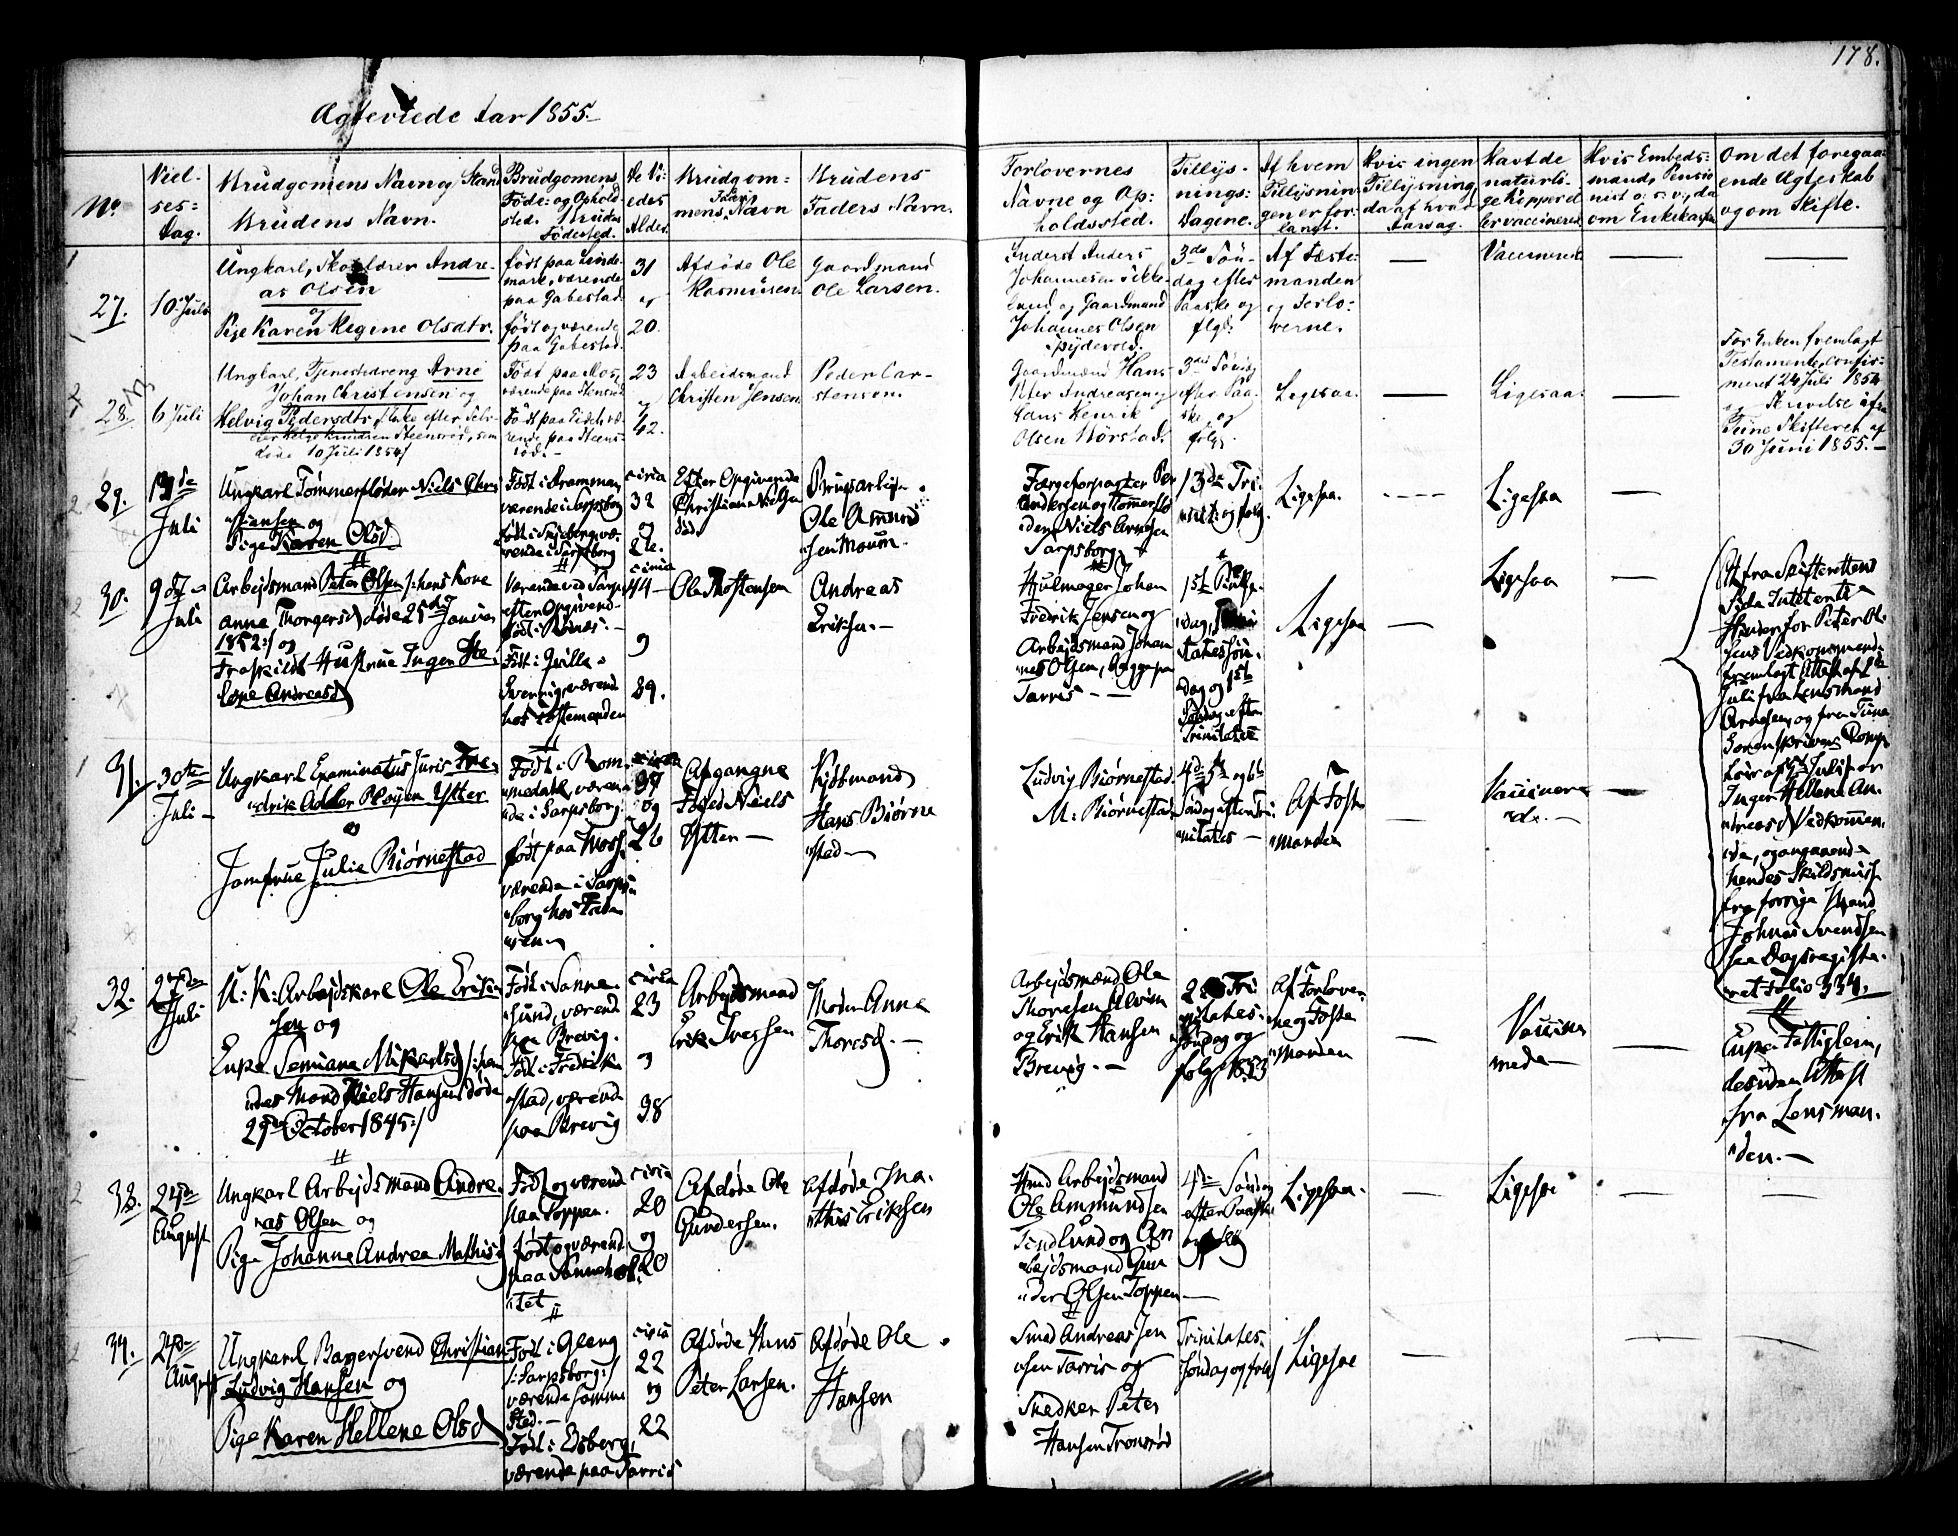 178.
Ægteviede Aar 1855.
No.
Viel-
ses-
Dag.
Brudgomens Navn og Stand
Brudens Navn.
Brudgomens
Føde- og Ophold-
sted. Brudens
Fødested.
De Vi-
edes
Alder.
Brudgom-
mens Faders Navn
Brudens
Faders Navn.
Forlovernes
Navne og Op-
holdssted.
Tillys-
nings-
Dagene.
Af hvem
Tillysnin-
gen er for-
langt.
Hvis ingen
Tillysning,
da af hvad
Aarsag.
Havt de
naturli-
ge Kopper el-
ler vaccineret
Hvis Embeds-
mand, Pensio-
nist o: s: v:, da
om Enkekasse
Om det foregaa-
ende Ægteskab
og om Skifte.
27.
10 Juli
Ungkarl, Skolelærer Andre-
as Olsen
og
Pige Karen Regine Olsdtr.
født paa Linde-
mark, værende
paa Gabestad
født og værende
paa Gabestad.
31
og
20.
Afdøde Ole
Rasmussen
Gaardmand
Ole Larsen.
Johannesen
og Gaardmand
Johannes Olsen
Spydevold.
3de Søn-
dag efter
Paaske og
flgd:
Af Fæste-
manden
og Forlo-
verne.
Vaccineret
28.
6 Juli
Ungkarl, Tjenestedreng Arne
Johan Christensen og
Helvig Pedersdtr, Enke efter
døde 10 Juli 1854/
Født paa Mos,
værende paa Stensrød
Født paa
rende paa Steens-
rød.
23
og
42.
Arbeidsmand
Christen Jensen
Peder Lar-
stensen.
Gaardmænd Hans
Peter Andreasen og
Hans Henrik
Olsen Nørstad.
3die Søndag
efter Paa-
ske og
følg.
Ligesaa.
Ligesaa.
For Enken fremlagt
Testamente, confir-
meret 24 Juli 1854
og Skrivelse fra
Tune Skifteret af
30 Juni 1855.
29.
13de
Juli
Ungkarl Tømmerfløder Niels Chri-
stiansen og
Pige Karen Olsd.
Født i Drammen,
værende i Sarpsborg
Født i Skjeberg, væ-
rende i Sarpsborg
circa
32
og
26.
Efter Opgivende
Christian Nielsen
død.
Brugsarbei-
Ole Amund-
sen Moum.
Færgeforpagter Per
Andersen og Tømmerflø-
deren Niels Arnesen
Sarpsborg
13de Tri-
nitat: og følg.
Ligesaa.
Ligesaa
30.
Juli
Arbejdsmand Peter Olsen /: hens Kone
Anne Thorgersd døde 25de Januar
1852:/ og
Fraskildt Hustrue Inger He-
lene Andreasd
Værende ved Sarps
efter Opgivend-
født i Rønes.
Født i Qville
Sverrig, værend
hos Fæstemanden
circa
44
og
39.
Ole Thostensen
Andreas
Eriksen.
Hjulmager Johan
Fredrik Jensen og
Arbejdsmand Johan-
nes Olsen, begge paa
Tarris
1ste Pintse-
dag, Trini-
tatessøn-
dag og 1ste
Søndag efter
Trinitatis
Ligesaa
Ligesaa
At fra Skifterettens
Side Intet er til
Hinder for Peter Ol-
sens Vedkommend-
fremlagt Attest af
Juli fra Lensmand
Arnesen, og fra Tune
Sorenskriver Romp-
Juli for
Inger Hellene An-
dreasd Vedkommen-
de, og angaaende
hendes Skildsmisse
fra forrige Mand
Johnas Svendsen
saa Dagsregiste-
ret Folio 334.
31.
30te
Juli
Ungkarl Examinatus Juris Fre-
drik Adler Pløyen Ytter
og
Jomfrue Julie Biørnestad
Født i Rom-
medal, væren-
de i Sarpsborg.
født paa Moss.
værende i Sarps-
borg hos Fade-
ren
circa
37
og
26
Afgangne
Foged Niels
Ytter
Kjøbmand
Hans Biørne-
stad
Ludvig Biørnestad
M: Biørnestad
4de 5te og 6te
Søndag efter Tri-
nitates
Af Fæste-
manden
Vaccinere-
de.
32.
27de
Juli
U: K: Arbejdskarl Ole Erik-
sen og
Enke Semiane Mikaelsd /: hen-
des Mand Niels Hansen døde
29de October 1845:/
Født i Sanne-
sund, værende
paa Brevig.
Født i Fredrik-
stad, værend
paa Brevig
circa
23
og
38
Arbejdsmand
Erik Iversen
Moder Anne
Thoresd.
Arbejdsmænd Ole
Thoresen Alvim
og Erik Hansen
Brevig.
Tri-
nitates-
Søndag og
følg.
Af Forlover-
ne og Fæste-
manden
Vaccine-
rede
Enken Fattiglem,
desuden Attest
fra Lensman-
den.
33.
24de
August
Ungkarl Arbejdsmand Andre-
as Olsen og
Pige Johanne Andrea Mathisd
Født og værend
paa Toppen.
født og værend-
paa Sannehol-
tet
circa
20
og
20
Afdøde Ole
Gundersen.
Afdøde Ma-
this Eriksen
Hmd Arbejdsmand
Ole Ammundsen
Tindlund og Ar-
bejdsmand Gun-
der Olsen Toppen
4de Søndag
efter Paaske
og følg
Ligesaa.
Ligesaa
34.
24de
August
Ungkarl Bagersvend Christian
Ludvig Hansen og
Pige Karen Hellene Olsd
Født i Gleng
/: Sarpsborg:/
værende samme
Sted.
Født i Edsberg,
værende paa Tarris
circa
22
og
22
Afdøde Hans
Peter Larsen.
Afdøde Ole
Hansen
Smed Andreas Jen-
sen Tarris og
Snedker Peter
Hansen Tronsrød
Trinitates-
Søndag og følg
Ligesaa